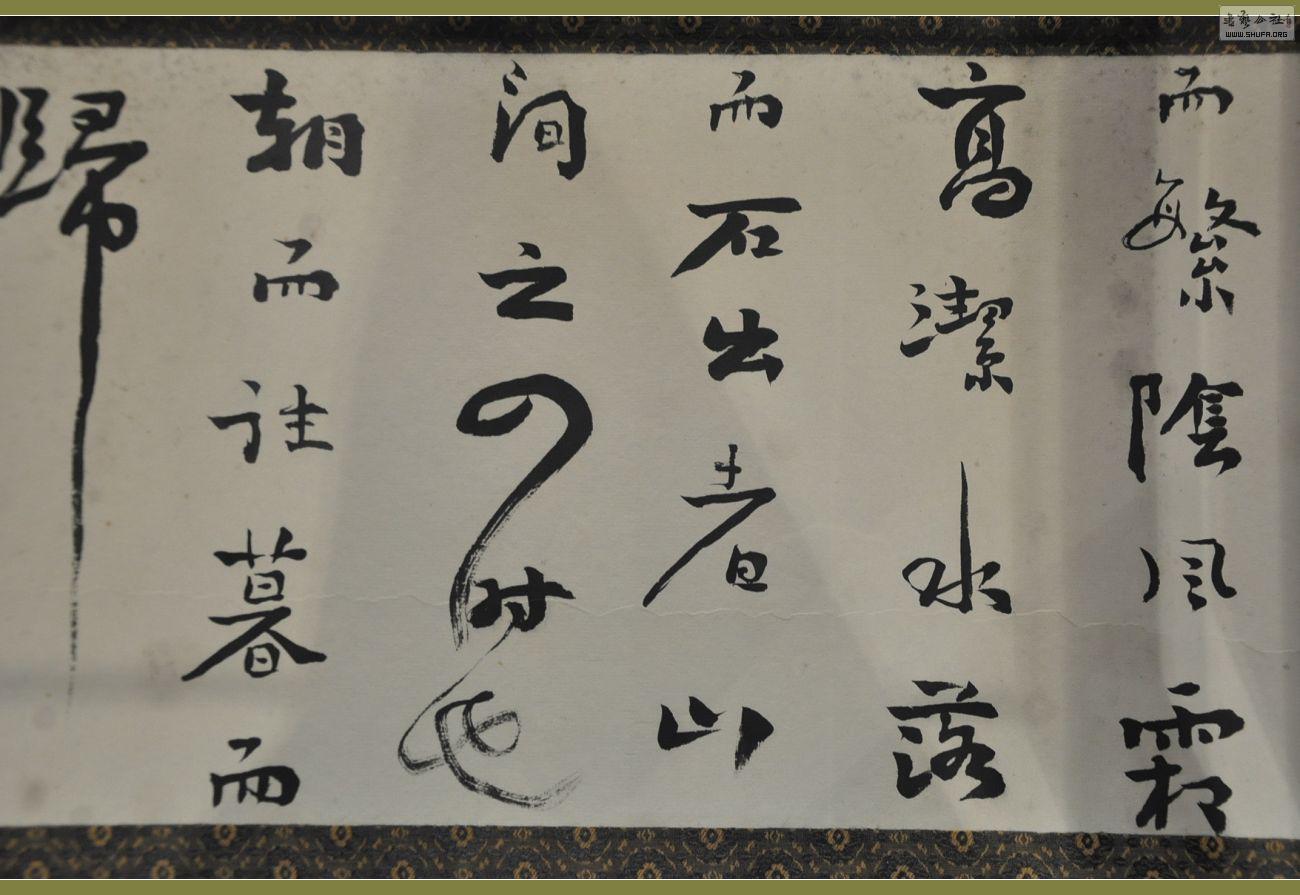 而繁陰風霜
高潔水落
而石出者山
间之四时也
朝而往暮而
歸
書藝公社
WWW.SHUFA.ORG